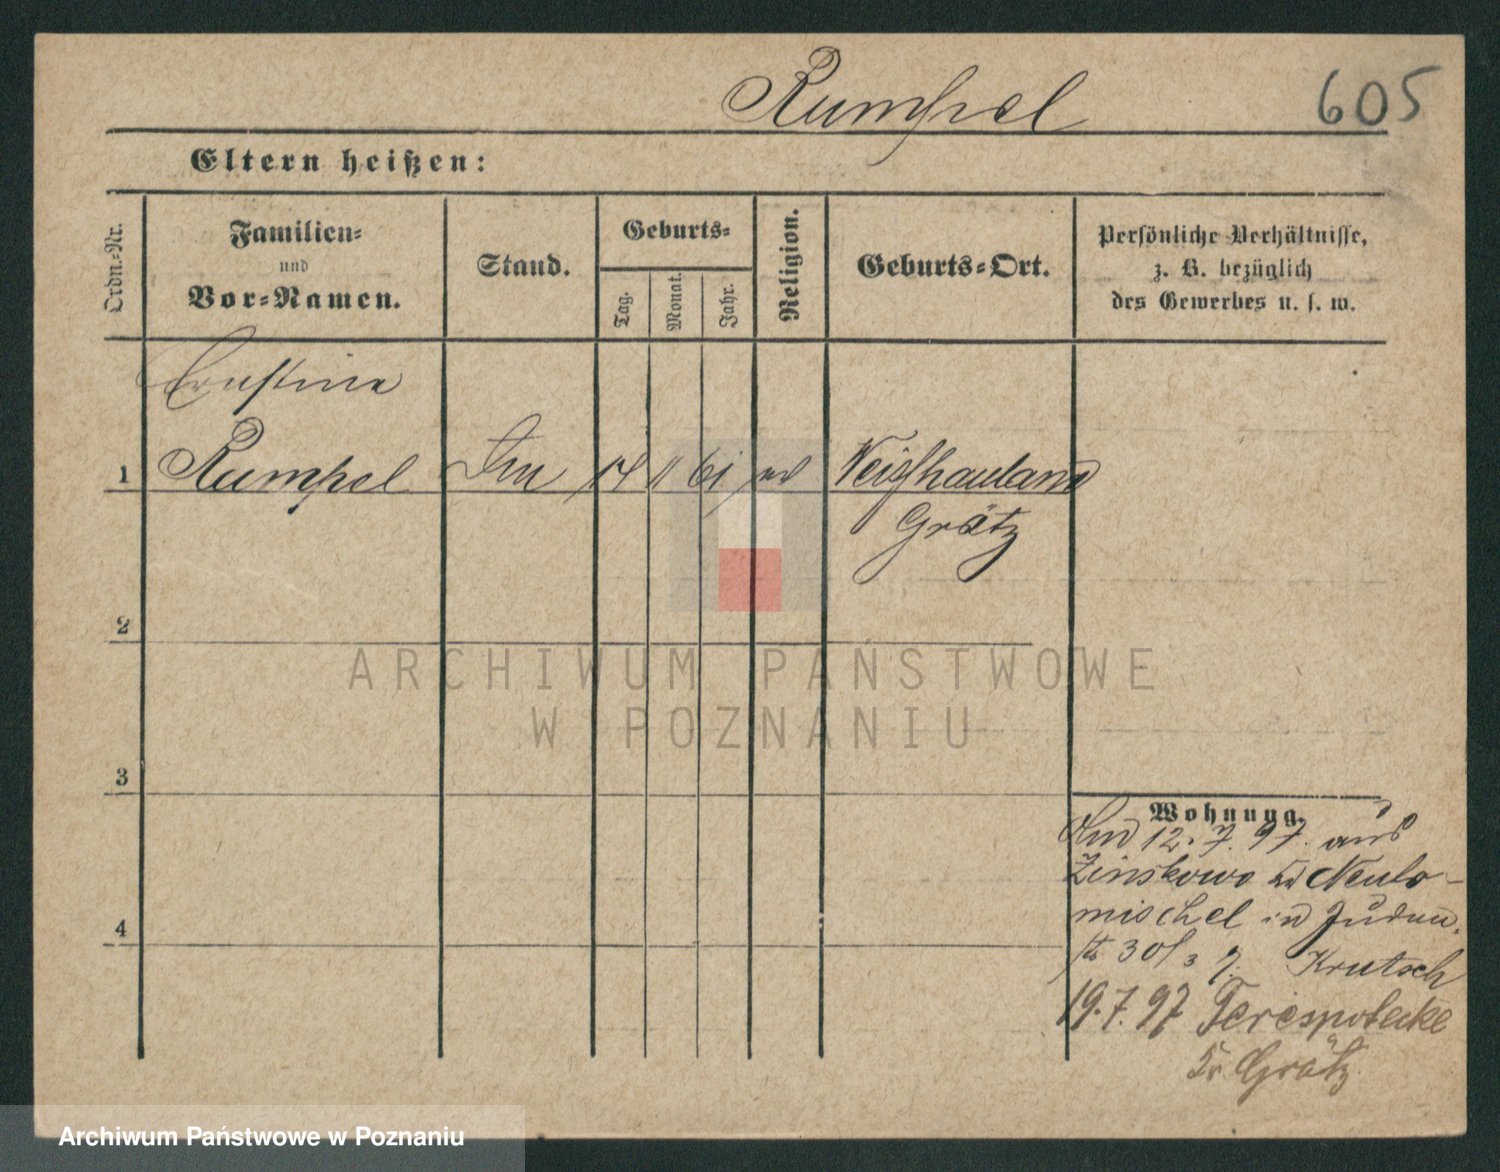 Rumpel 605
Eltern heißen:
Ordn.-Nr.
Familien- und Vor-Namen.
Stand.
Geburts-
Tag.
Monat.
Jahr.
Religion.
Geburts-Ort.
Persönliche Verhältnisse,
z. B. bezüglich
des Gewerbes u. s. w.
Ernestine
1 Rumpel 14 11 61 Weishauland
Grätz
2
ARCHIWUM PAŃSTWOWE
W POZNANIU
3
Wohnung.
12. 7. 97. aus
Zinskowo Neuto-
mischel in Juden
30/3 Krutsch
19.7.97 Terespotocke
Kr. Grätz
4
Archiwum Państwowe w Poznaniu